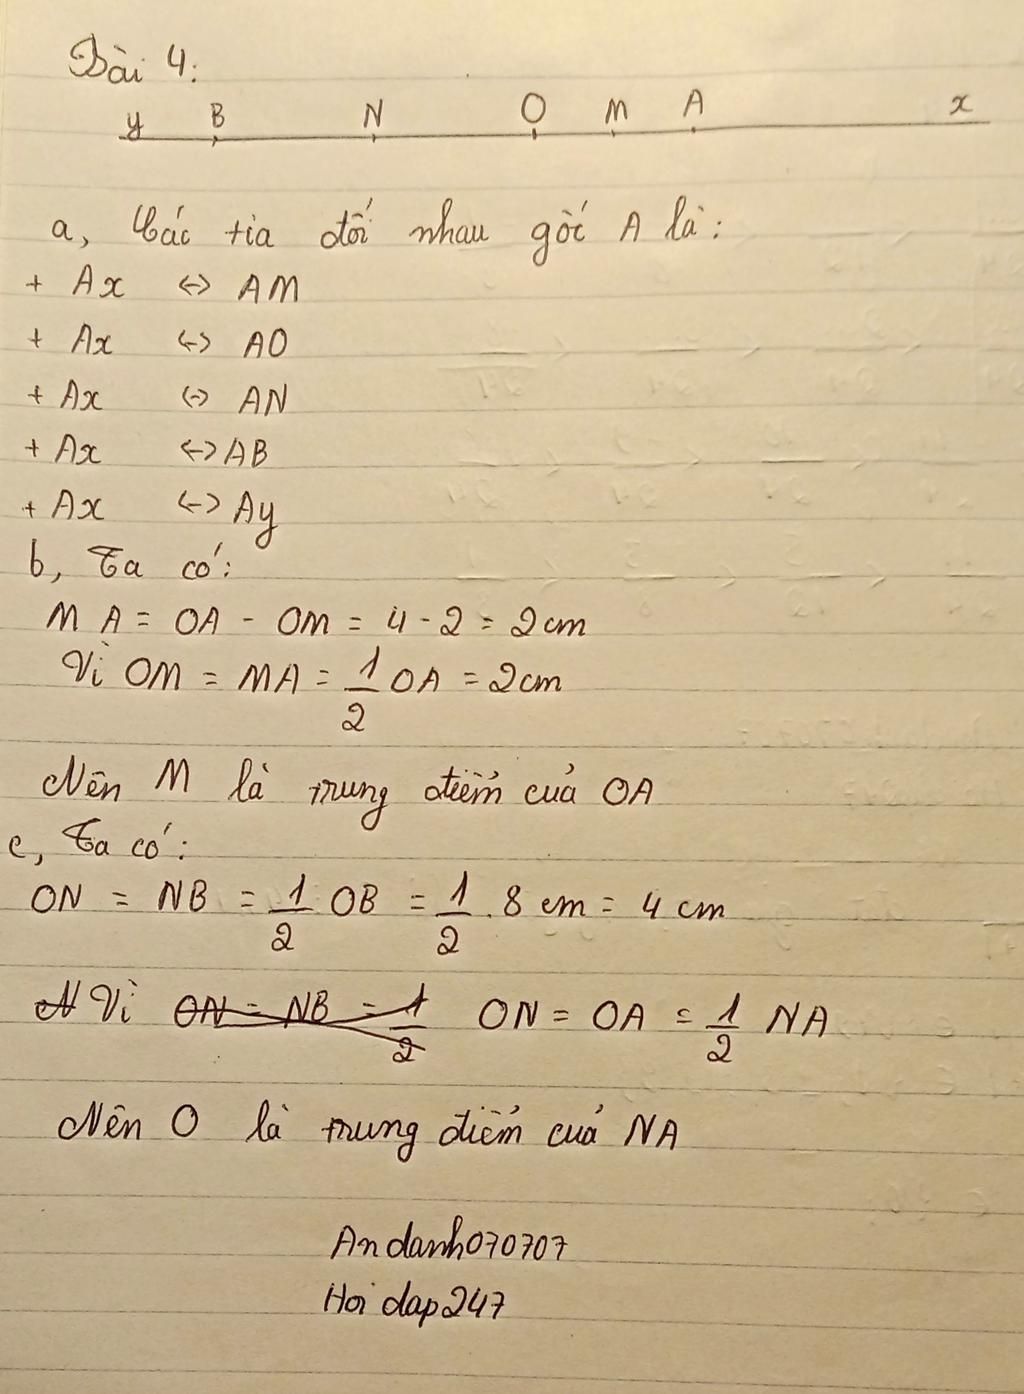 Bài 4:
y B N O M A x
a, Các tia đối nhau gốc A là:
+ Ax <-> AM
+ Ax <-> AO
+ Ax <-> AN
+ Ax <-> AB
+ Ax <-> Ay
b, Ta có:
MA = OA - OM = 4 - 2 = 2cm
Vì OM = MA = 1/2 OA = 2cm
Nên M là trung điểm của OA
c, Ta có:
ON = NB = 1/2 OB = 1/2 . 8 cm = 4 cm
N Vì ON = NB = 1/2 ON = OA = 1/2 NA
Nên O là trung điểm của NA
Andanh070707
Hoi dap247